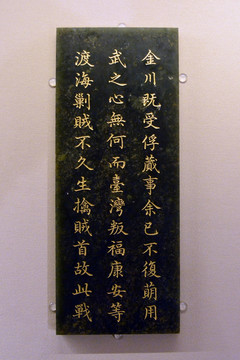 金川既受俘蕆事余已不復萌用
武之心無何而臺灣叛福康安等
渡海剿賊不久生擒賊首故此戰